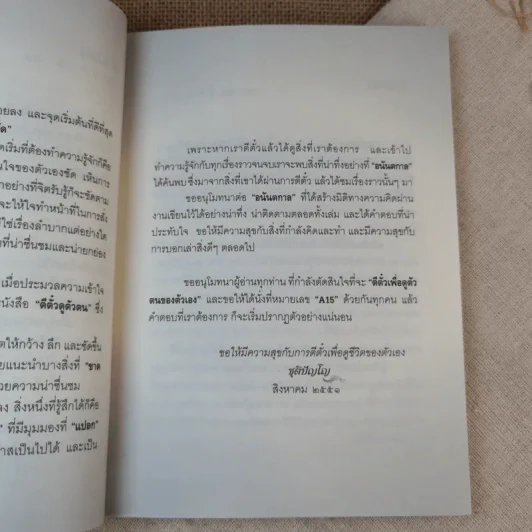 อยลง และจุดเริ่มต้นที่ดีที่สุด
ชัด"
เริ่มที่ต้องทำความรู้จักก็คือ
นใจของตัวเองชัด เห็นการ
อย่างที่จิตรับรู้ก็จะชัดตาม
จะให้ใจทำหน้าที่ในการสั่ง
ใช่เรื่องลำบากแต่อย่างใด
รที่น่าชื่นชมและน่ายกย่อง
เมื่อประมวลความเข้าใจ
นังสือ "ตีตั๋วดูตัวตน" ซึ่ง
ตให้กว้าง ลึก และชัดขึ้น
ยแนะนำบางสิ่งที่ "ขาด
วยความน่าชื่นชม
ลง สิ่งหนึ่งที่รู้สึกได้ก็คือ
" ที่มีมุมมองที่ "แปลก"
าสเป็นไปได้ และเป็น
เพราะหากเราตีตั๋วแล้วได้ดูสิ่งที่เราต้องการ และเข้าไป
ทำความรู้จักกับทุกเรื่องราวจนจบเราจะพบสิ่งที่น่าทึ่งอย่างที่ "อนันตกาล"
ได้ค้นพบ ซึ่งมาจากสิ่งที่เขาได้ผ่านการตีตั๋ว แล้วได้ชมเรื่องราวนั้นๆ มา
ขออนุโมทนาต่อ "อนันตกาล" ที่ได้สร้างมิติทางความคิดผ่าน
งานเขียนไว้ได้อย่างน่าทึ่ง น่าติดตามตลอดทั้งเล่ม และได้คำตอบที่น่า
ประทับใจ ขอให้มีความสุขกับสิ่งที่กำลังคิดและทำ และมีความสุขกับ
การบอกเล่าสิ่งดีๆ ตลอดไป
ขออนุโมทนาผู้อ่านทุกท่าน ที่กำลังตัดสินใจที่จะ "ตีตั๋วเพื่อดูตัว
ตนของตัวเอง" และขอให้ได้นั่งที่หมายเลข "A15" ด้วยกันทุกคน แล้ว
คำตอบที่เราต้องการ ก็จะเริ่มปรากฏตัวอย่างแน่นอน
ขอให้มีความสุขกับการตีตั๋วเพื่อดูชีวิตของตัวเอง
ชุติปัญโญ
สิงหาคม ๒๕๕๑